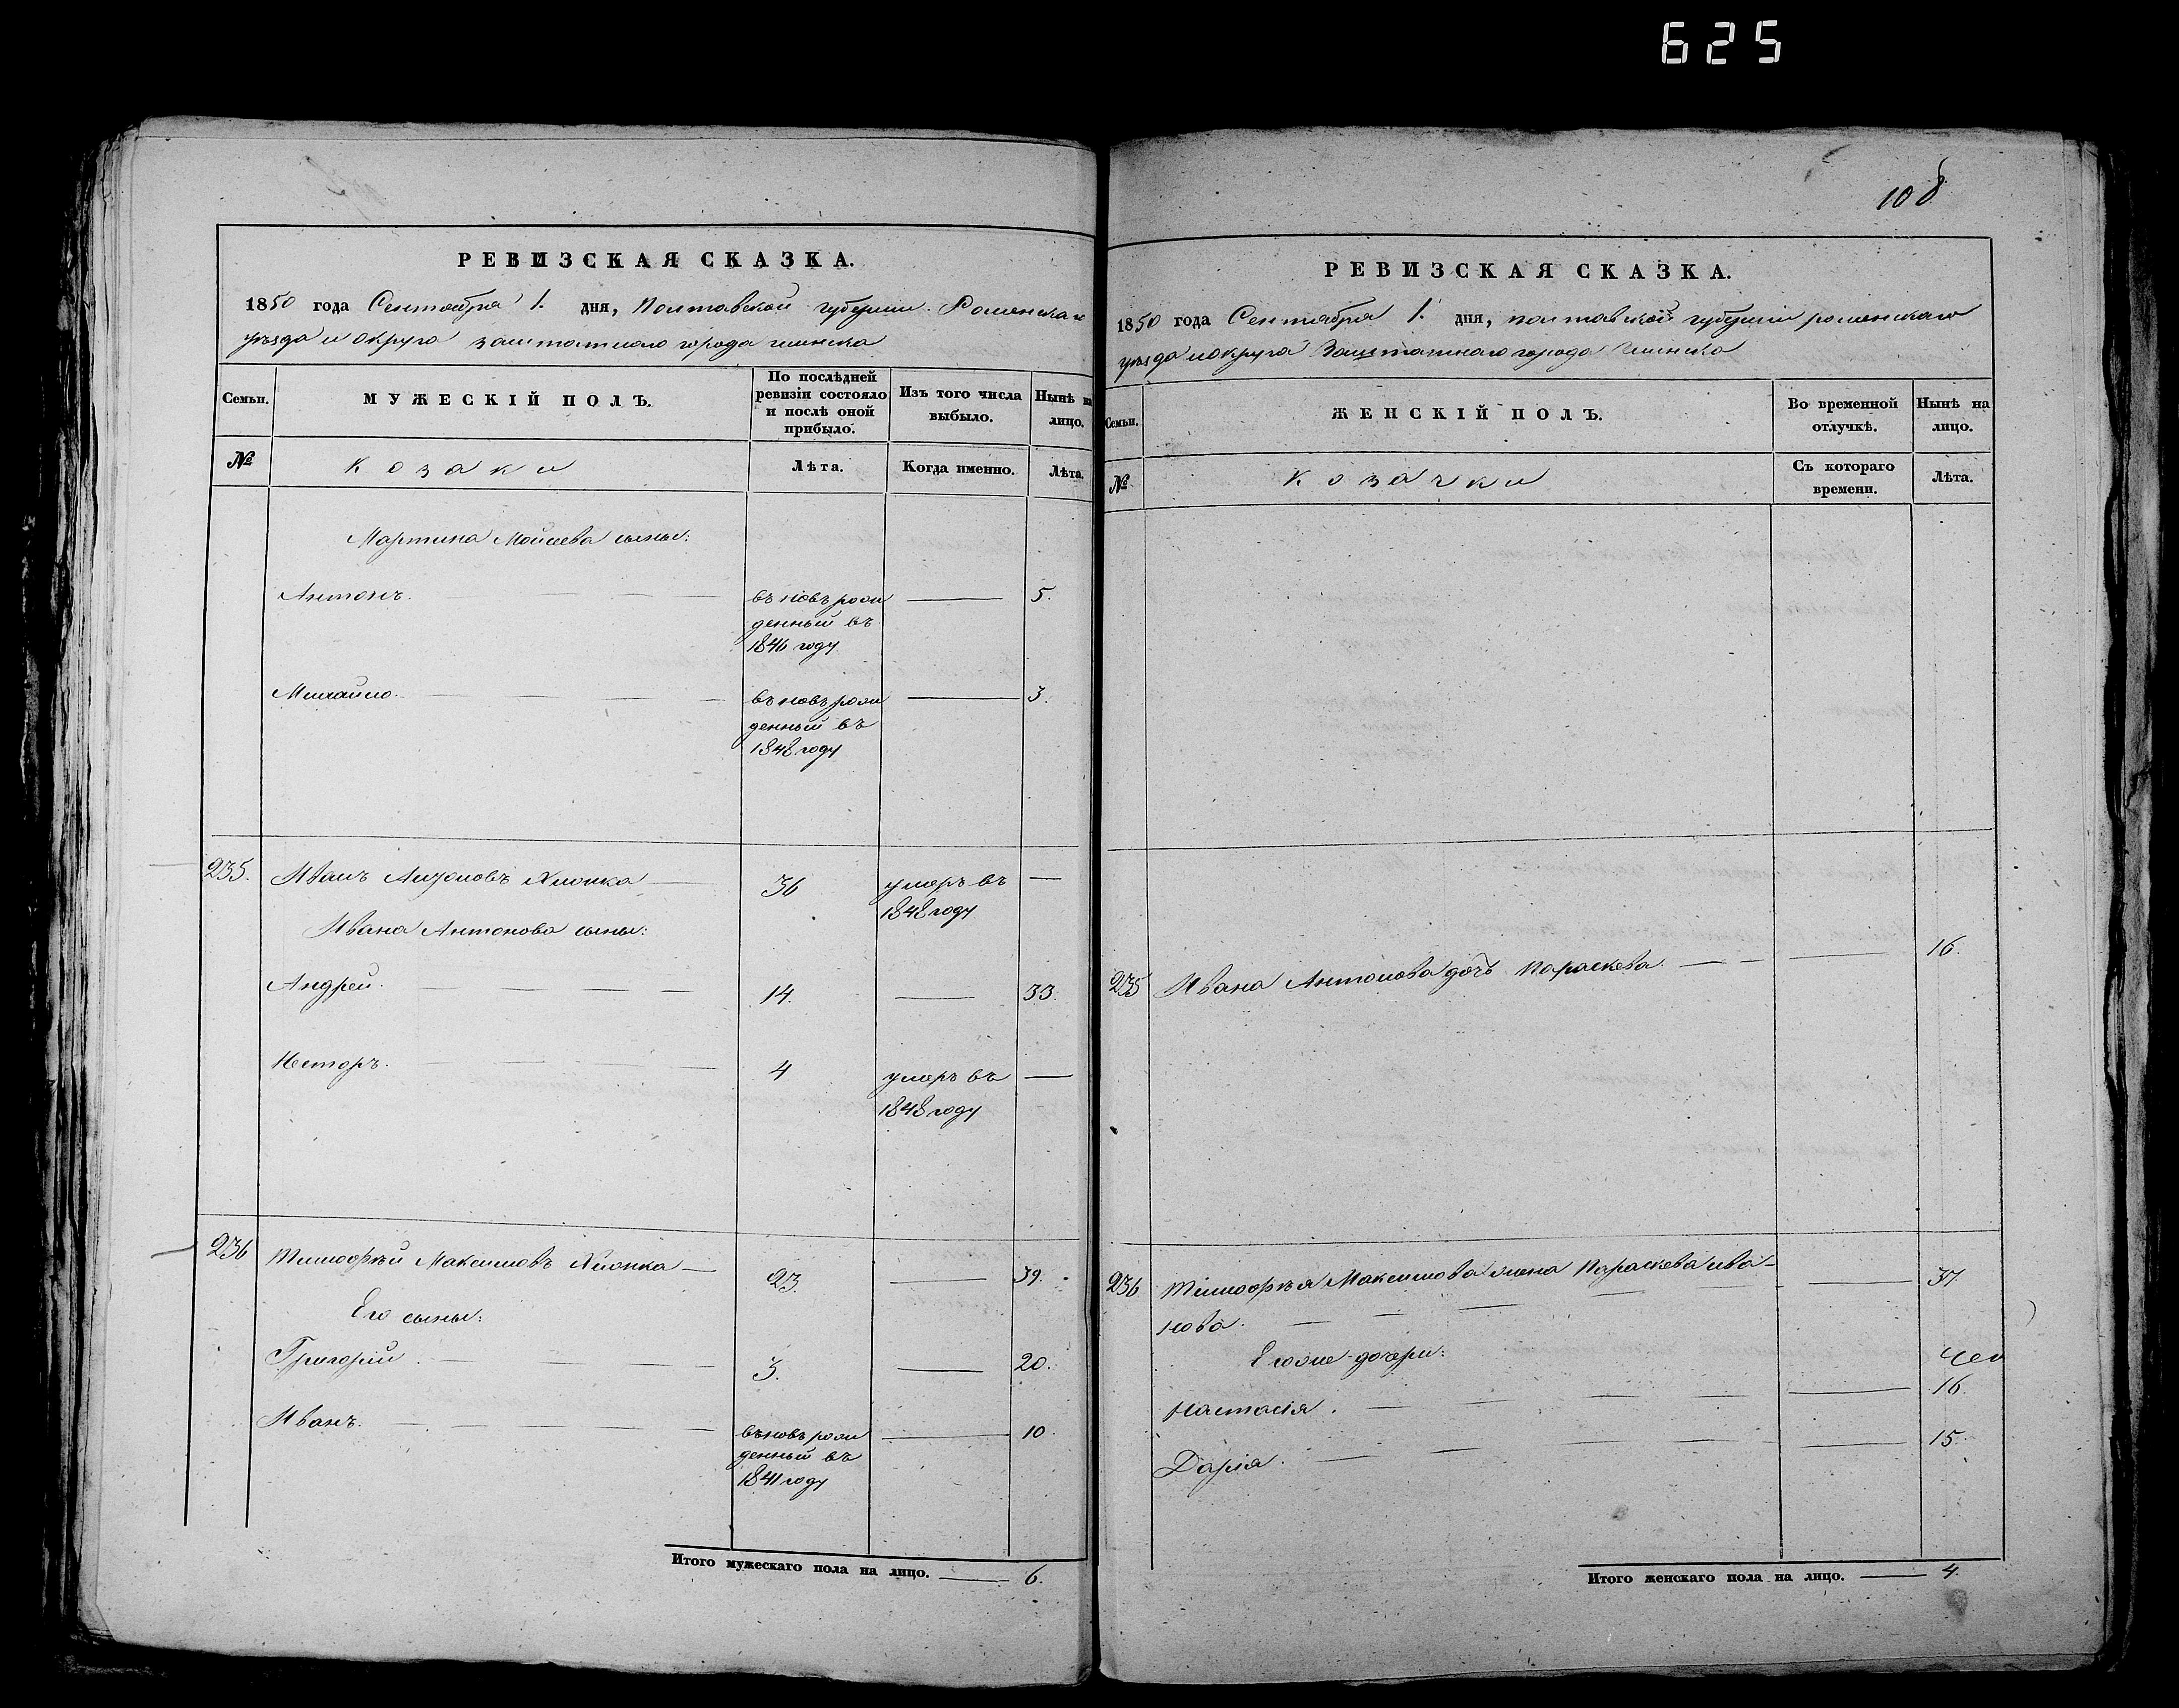 625
РЕВИЗСКАЯ СКАЗКА.
1850 года Сентября 1. дня, Полтавской губернии Роменскаго
уѣзда и округа заштатнаго города глинска
Семьи.
МУЖЕСКІЙ ПОЛЪ.
По послѣдней ревизіи состояло и послѣ оной прибыло.
Изъ того числа выбыло.
Нынѣ на лицо.
№
Козаки
Лѣта.
Когда именно.
Лѣта.
Мартина Мойсева сыны:
Антонъ. въновъ рож 5.
денный въ
1846 году
Михайло. въновъ рож 3.
денный въ
1848 году
235. Иванъ Антоновъ Хлопка 36 умеръ въ
1848 году
Ивана Антонова сыны:
Андрей. 14. 33.
Несторъ. 4 умеръ въ
1848 году
236 Тимофѣй Максимовъ Хлопка 23. 39.
Его сыны:
Григорій 3. 20.
Иванъ. въновъ рож 10.
денный въ
1841 году
Итого мужескаго пола на лицо. 6.
108
РЕВИЗСКАЯ СКАЗКА.
1850 года Сентября 1. дня, полтавской губерніи роменскаго
уѣзда и округа Заштатнаго города Глинска
Семьи.
ЖЕНСКІЙ ПОЛЪ.
Во временной отлучкѣ.
Нынѣ на лицо.
№
Козачки
Съ котораго времени.
Лѣта.
235 Ивана Антонова дочь Параскева. 16.
236. Тимофѣя Максимова жена Параскева ива- 37.
нова.
Егоже дочери:
Настасія. 16.
Дарія. 15.
Итого женскаго пола на лицо. 4.